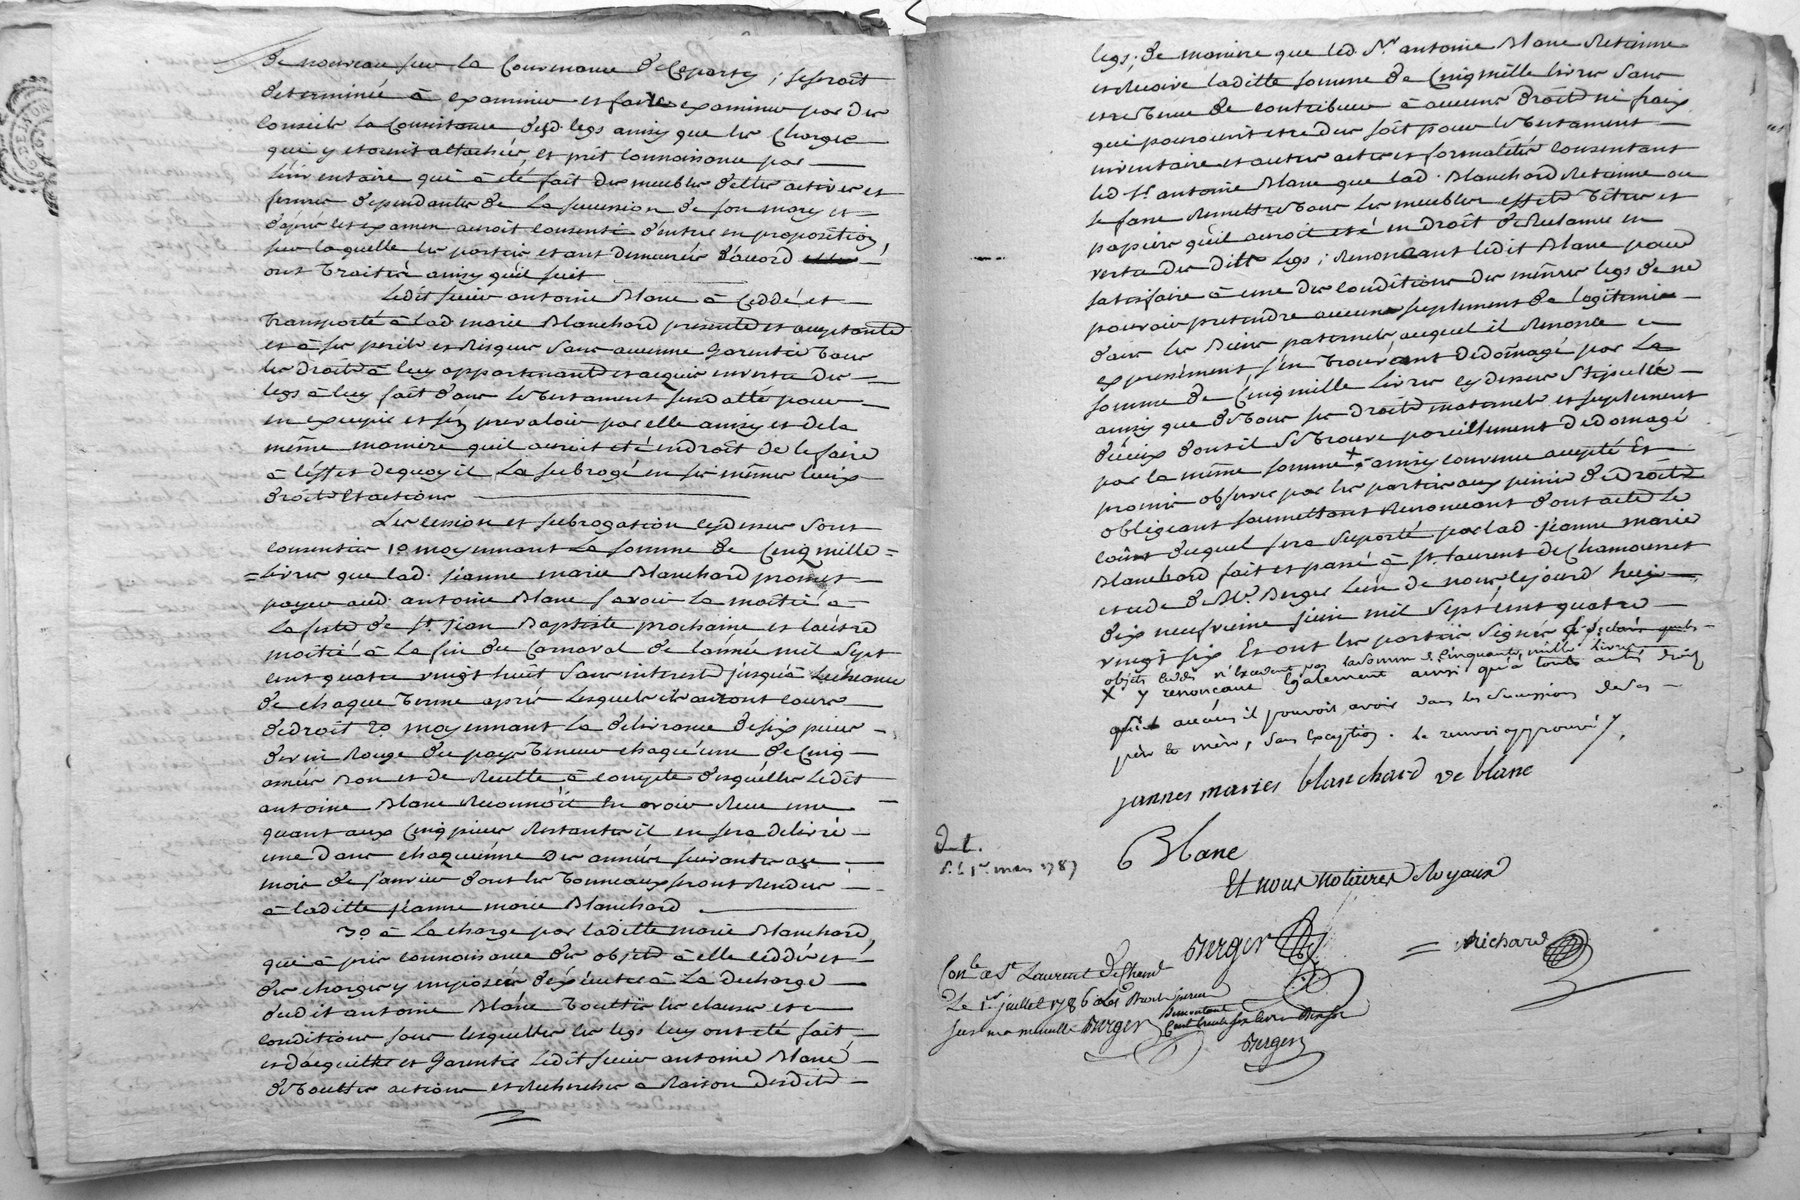 de nouveau sur la Convenance de Ce party ; se seroit
determinée à examiner et faire examiner par des
Conseils la Consistance desd. legs ainsy que les Charges
qui y etoient attachés, et prit connoissance par
l'inventaire qui à été fait des meubles dettes actives et
ferures dependantes de la succession de son mary et
d'après cet examen auroit consenti d'entrer en proposition
sur laquelle les parties etant demeurées d'accord
ont traitté ainsy qu'il suit
Ledit sieur antoine Blanc à Ceddé et
transporté à lad marie Blanchard presente et acceptante
et à ses perils et risques sans aucune garentie tous
les droits à luy appartenants et acquis en vertu des
legs à luy fait dans le testament susdatté pour
en exciper et s'en prevaloir par elle ainsy et de la
même maniere qu'il auroit eté en droit de le faire
à l'effet de quoy il la subrogé en ses mêmes lieux
droits et actions
Les cession et subrogation cydessus sont
consenties 1o moyennant la somme de Cinq mille =
= Livres que lad. jeanne marie Blanchard promet
payer aud. antoine Blanc savoir la moitié à
la feste de St jean Baptiste prochaine et l'autre
moitié à la fin du Carnaval de l'année mil sept
cent quatre vingt huit sans interest jusqu'à l'echeance
de chaque terme après lesquels ils auront cours
de droit 2o moyennant la delivrance de six pieces
de vin Rouge du pays teneur chaqu'une de Cinq
anées bon et de Recette à compte desquelles Ledit
antoine Blanc Reconnoit en avoir Receu une
quant aux Cinq pieces Restantes il en sera delivré
une dans chaqu'une des années suivantes au
mois de janvier dont les tonneaux seront Rendus
à laditte jeanne marie Blanchard
3o à la charge par laditte marie Blanchard,
qui à pris connoissance des objets à elle ceddés et
des charges y imposées d'éxécuter à la decharge
dudit antoine Blanc touttes les clauses et
conditions sous lesquelles les legs luy ont eté fait
et d'acquitter et garentir Ledit sieur antoine Blanc
de touttes actions et Recherches a Raison desdits
legs ; de maniere que led. Sr antoine Blanc Retienne
et Recoive laditte somme de Cinq mille livres sans
etre tenu de contribuer à aucuns droits ni fraix
qui pourroient etre dus soit pour le testament
inventaire et autres actes et formalités consentant
led Sr antoine Blanc que lad. Blanchard Retienne ou
se fasse Remettre tous les meubles effets titres et
papiers qu'il auroit eté en droit de Reclamer en
vertu des dits legs ; Renoncant ledit Blanc pour
satisfaire à une des conditions des mêmes legs de ne
pouvoir pretendre aucun suplement de legitime
dans les biens paternels auquel il Renonce
expressément, s'en trouvant dedomagé par la
somme de Cinq mille livres cydessus stipullée
ainsy que de tous ses droits maternels et suplement
d'iceux dont il se trouve pareillement dedomagé
par la même somme x ainsy convenu accepté et
promis observer par les parties aux peines de droits
obligeant soumettant Renonceant dont acte le
coûst duquel sera suporté par lad. jeanne marie
Blanchard fait et passé à St. laurent de Chamousset
etude de Me Berger L'un de nous, lejourd'huy
dix neufvieme juin mil sept cent quatre
vingt six Et ont les parties signés & declaré que les
objets cedés n'excedent pas la somme de cinquante mille livres
x y renoncant egalement ainsi qu'à tous autres droits
qu'il auroit il pouvoir avoir dans les successions de ses
père & mère, sans exception. le renvoi approuvé /.
jannes maries blanchard ve blanc
Blanc
Et nous notaires Royaux
D. l.
Berger
= Richard
Conlé a St Laurent de Cham.
Le 1er juillet 1786
sur ma minutte Berger
Berger